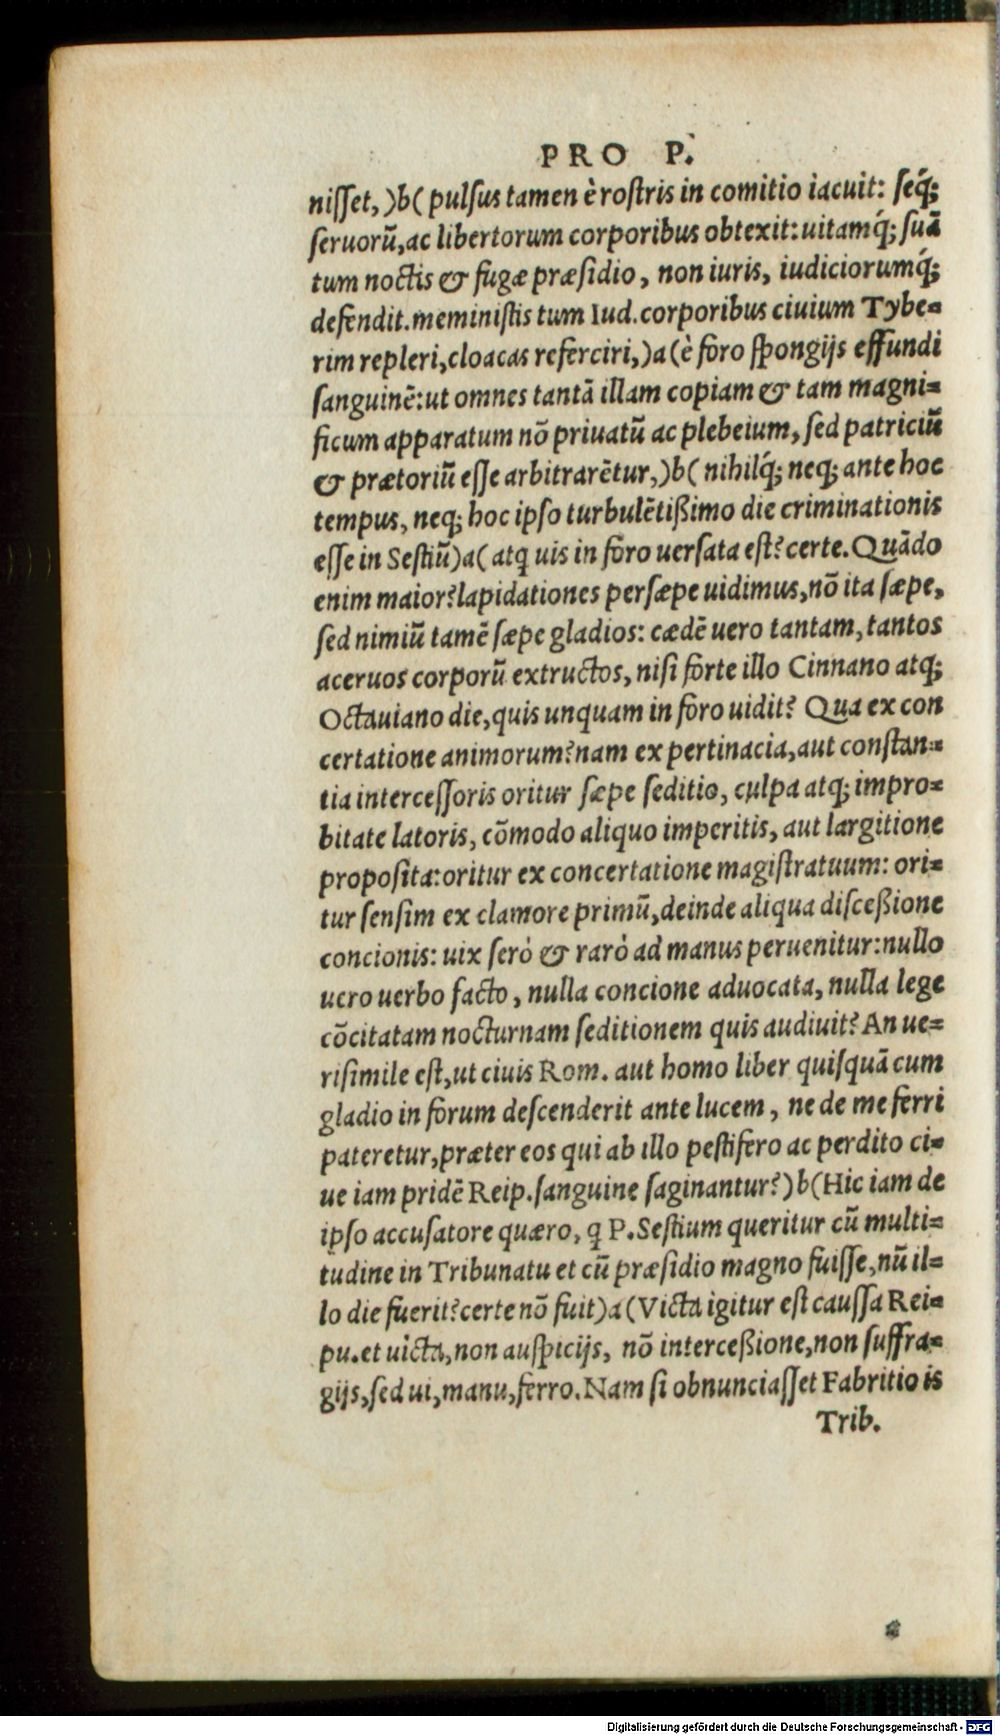 PRO P.
niſſet, )b( pulſus tamen è roſtris in comitio iacuit: ſeq́;
ſeruorū, ac libertorum corporibus obtexit: uitamq́; ſuā
tum noctis & fugæ præſidio, non iuris, iudiciorumq́;
defendit. meminiſtis tum Iud. corporibus ciuium Tybe=
rim repleri, cloacas referciri, )a( è foro ſpongijs effundi
ſanguinē: ut omnes tantā illam copiam & tam magni=
ficum apparatum nō priuatū ac plebeium, ſed patriciū
& prætoriū eſſe arbitrarētur, )b( nihilq́; neq; ante hoc
tempus, neq; hoc ipſo turbulētißimo die criminationis
eſſe in Seſtiū )a( atq uis in foro uerſata eſt? certe. Quādo
enim maior? lapidationes perſæpe uidimus, nō ita ſæpe,
ſed nimiū tamē ſæpe gladios: cædē uero tantam, tantos
aceruos corporū extructos, niſi forte illo Cinnano atq;
Octauiano die, quis unquam in foro uidit? Qua ex con
certatione animorum? nam ex pertinacia, aut conſtan=
tia interceſſoris oritur ſæpe ſeditio, culpa atq; impro=
bitate latoris, cōmodo aliquo imperitis, aut largitione
propoſita: oritur ex concertatione magiſtratuum: ori=
tur ſenſim ex clamore primū, deinde aliqua diſceßione
concionis: uix ſerò & rarò ad manus peruenitur: nullo
uero uerbo facto, nulla concione aduocata, nulla lege
cōcitatam nocturnam ſeditionem quis audiuit? An ue=
riſimile eſt, ut ciuis Rom. aut homo liber quiſquā cum
gladio in forum deſcenderit ante lucem, ne de me ferri
pateretur, præter eos qui ab illo peſtifero ac perdito ci=
ue iam pridē Reip. ſanguine ſaginantur? )b( Hic iam de
ipſo accuſatore quæro, q P. Seſtium queritur cū multi=
tudine in Tribunatu et cū præſidio magno fuiſſe, nū il=
lo die fuerit? certe nō fuit )a( Victa igitur eſt cauſſa Rei=
pu. et uicta, non auſpicijs, nō interceßione, non ſuffra=
gijs, ſed ui, manu, ferro. Nam ſi obnunciaſſet Fabritio is
Trib.
Digitalisierung gefördert durch die Deutsche Forschungsgemeinschaft - DFG